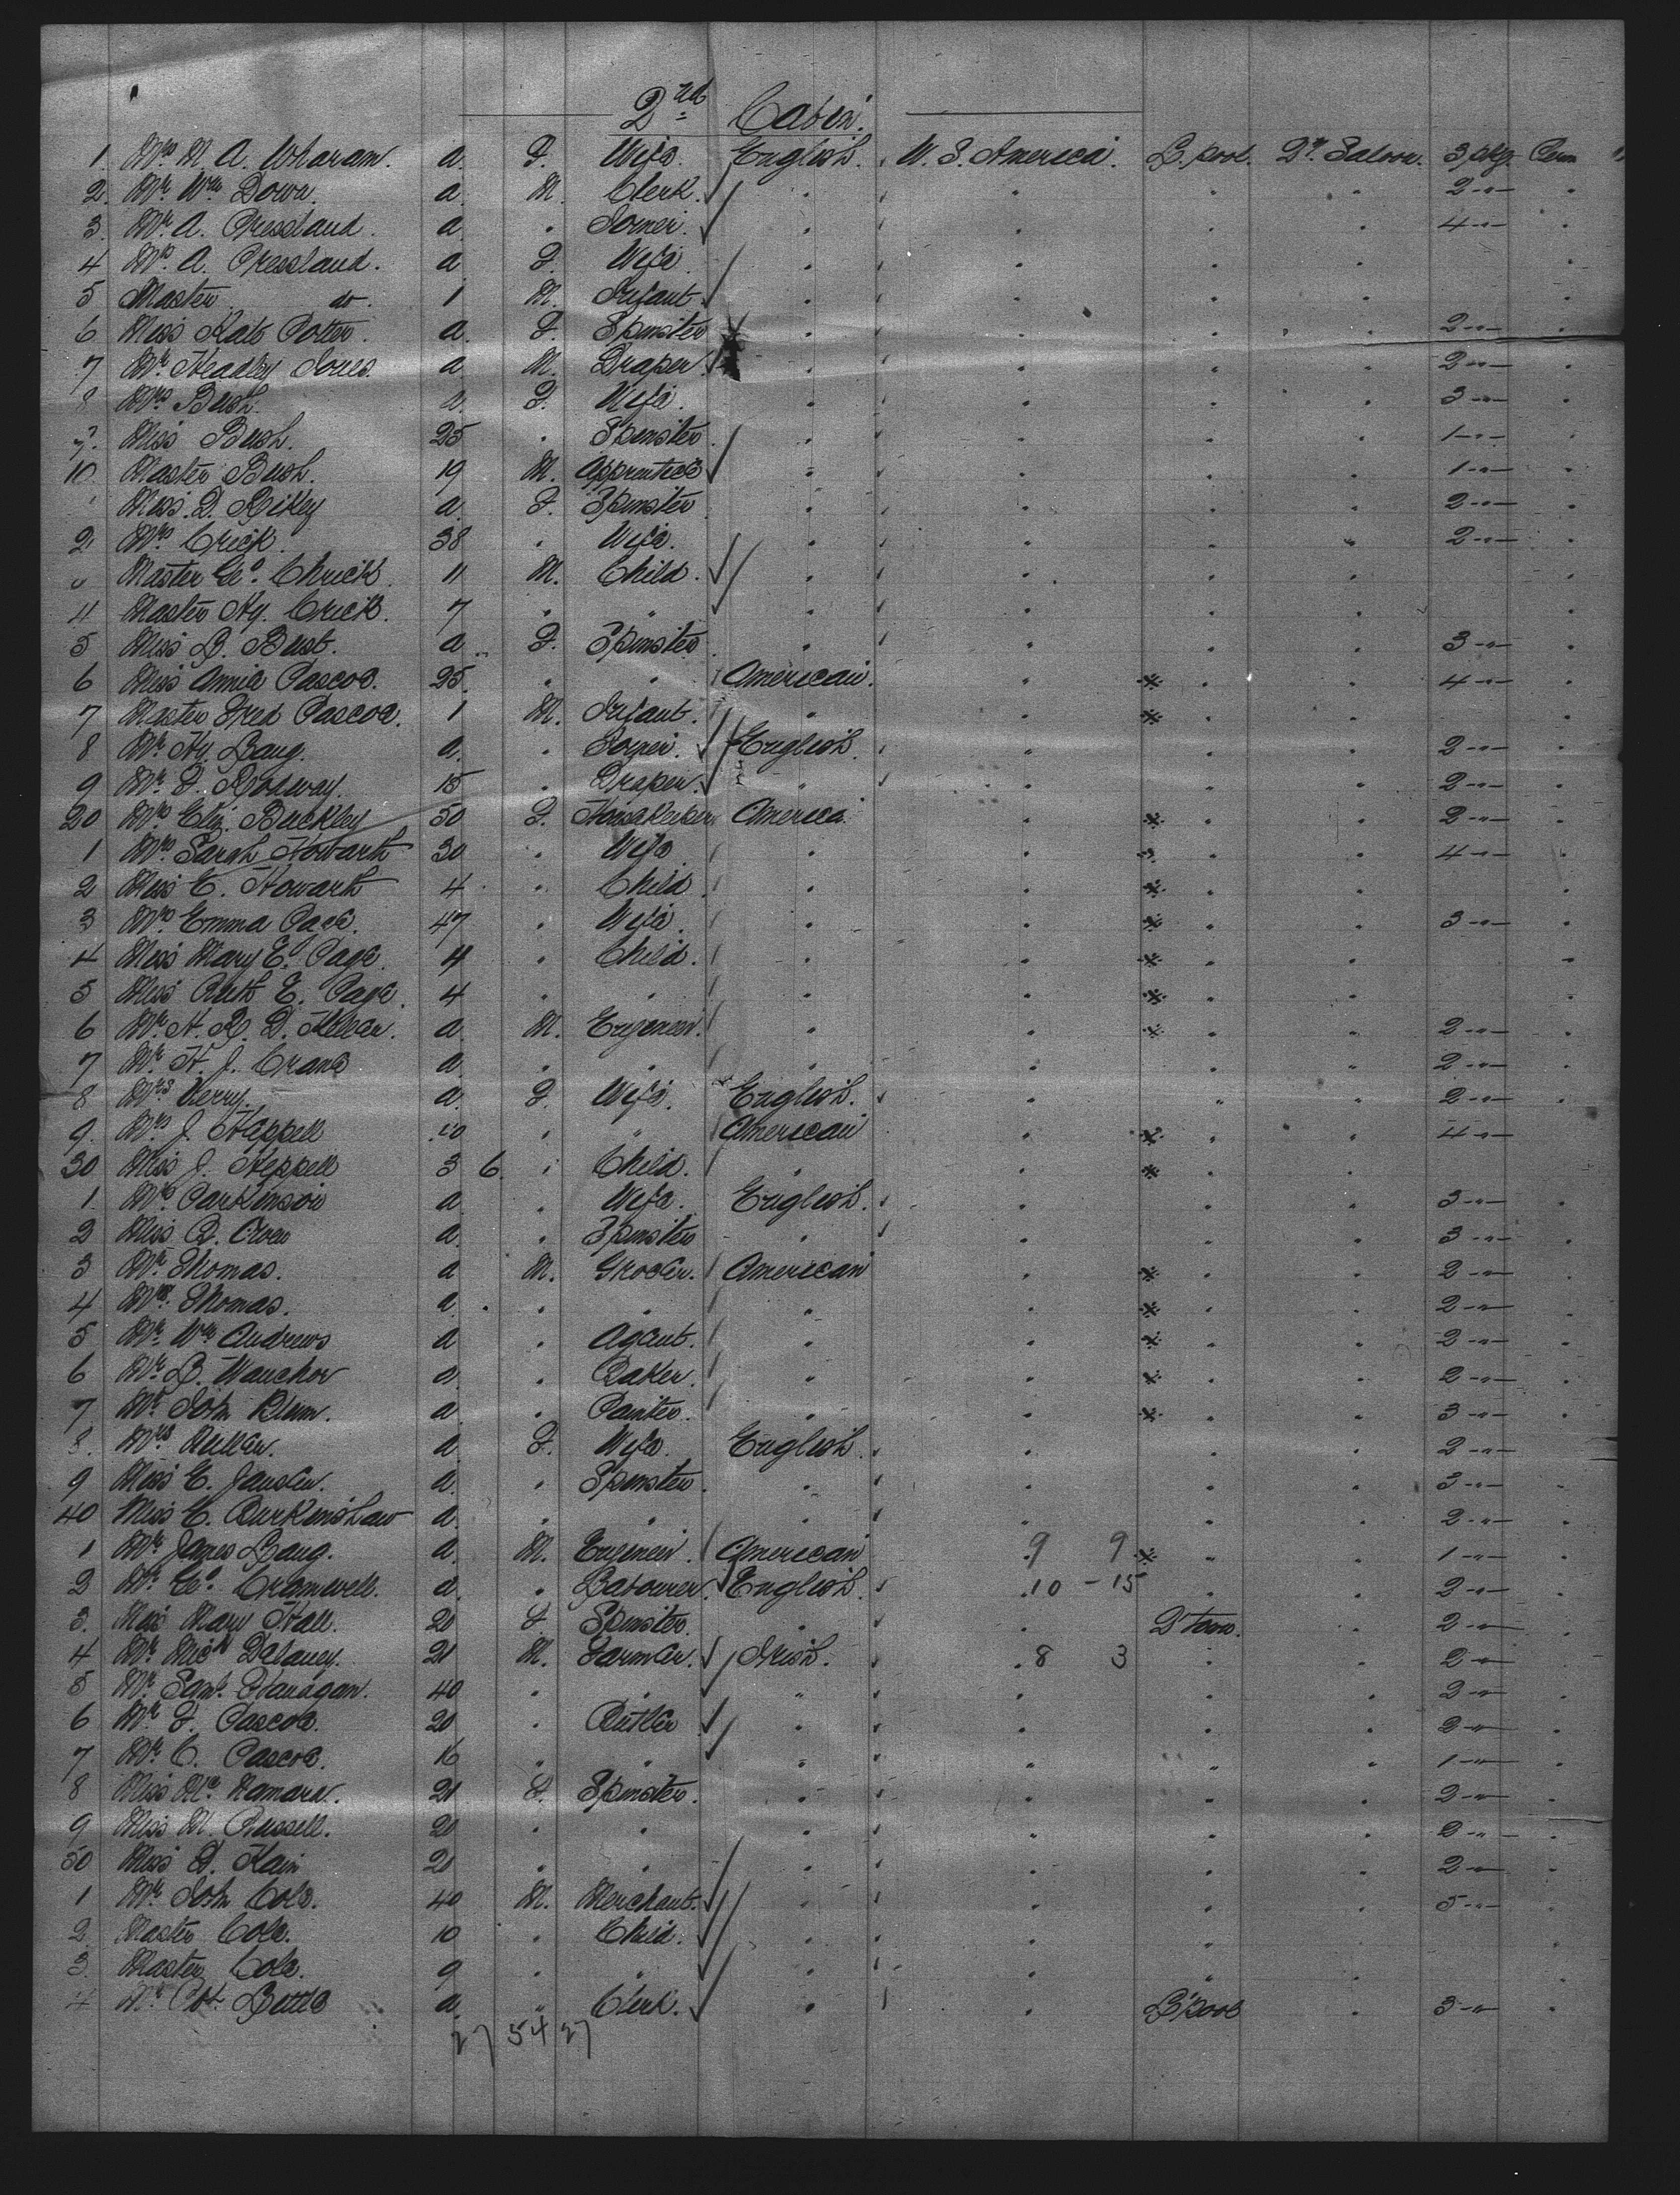 2nd Cabin.
1. Mrs M A. Wharam. a. F. Wife. English. U. S. America. L.pool. 2nd. Saloon. 3 pkg. Perm
2. Mr. Wm Down. a. M. Clerk. " " " " 2 - " - "
3. Mr. A. Pressland. a. " Joiner. " " " " 4 - " - "
4 Mrs. A. Pressland. a. F. Wife. " " " " "
5 Master do. 1 M. Infant. " " " "
6 Miss Kate Potter. a. F. Spinster " " " " 2 - " - "
7 Mr. Headley Jones. a M. Draper. " " " " 2 - " - "
8 Mrs Bush. a. F. Wife. " " " " 3 - " - "
9. Miss Bush. 25 " Spinster. " " " " 1 - " - "
10. Master Bush. 19 M. Apprentice " " " " 1 - " - "
Miss. D. Rikey a F. Spinster " " " " 2 - " - "
2. Mrs. Crick. 38 " Wife. " " " " 2 - " - "
Master Geo. Chrick. 11 M. Child. " " " " "
4 Master Hy. Crick. 7 " " " " " " "
5 Miss L. Bust. a. F. Spinster " " " " 3 - " - "
6 Miss Annie Pascoe. 25. " " American. " " " 4 - " - "
7 Master Fred Pascoe. 1 M. Infant. " " " " "
8 Mr. Hy. Lang. a. " Joiner. English. " " " 2 - " - "
9 Mr. F. Rodway. 15 " Draper. " " " " 2 - " - "
20 Mrs Eliz. Buckley 50 F. Housekeeper America. " " " 2 - " - "
1 Mrs. Sarah Howarth 30 " Wife " " " " 4 - " - "
2 Miss E. Howarth 4 " Child " " " " "
3 Mrs. Emma Page. 47 " Wife. " " " " 3 - " - "
4 Miss Mary E. Page. 11 " Child. " " " " "
5 Miss Ruth E. Page. 4 " " " " " " "
6 Mr. H. R. D. a. M. Engineer. " " " " 2 - " - "
7 Mr. H. J. Crane a. " " " " " " 2 - " - "
8 Mrs Kerry. a. F. Wife. English. " " " 2 - " - "
9. Mrs. J. Heppell 40 " " American " " " 4 - " - "
30 Miss J. Heppell 3 6 " Child. " " " "
1. Mrs Parkinson a. " Wife. English. " " " 3 - " - "
2 Miss a. " Spinster " " " " 3 - " - "
3 Mr. Thomas. a M. Grocer. American " " " 2 - " - "
4 Mr. Thomas. a. " " " " " " 2 - " - "
5 Mr. Wm Andrews a " Agent. " " " " 2 - " - "
6 Mr. L. a. " Baker. " " " " 2 - " - "
7 Mr. John Blum. a. " Painter. " " " " 3 - " - "
8. Mrs a. F. Wife. English. " " " 2 - " -
9 Miss E. Jansen. a. " Spinster. " " " " 3 - " - "
40 Miss E. Burkinshaw a. " " " " " " 2 - " - "
1 Mr. James Lang. a. M. Engineer. American 9 9 " " 1 - " - "
2 Mr. Geo. Cramwell. a. " Labourer. English. 10 - 15 " " 2 - " - "
3. Miss Mary Hall. 20 F. Spinster. " " Q'Town. 2 - " - "
4 Mr. Micl Delaney. 21 M. Farmer. Irish. 8 3 " " 2 - " "
5 Mr. Saml. Flanagan. 40 " " " " " " 2 - " -
6 Mr. F. Pascoe. 20 " Butler " " " " 2 - " "
7 Mr. C. Pascoe. 16 " " " " " " 1 - " - "
8 Miss Mc Namara. 21 F. Spinster. " " " " 2 - " - "
9 Miss M. Russell. 20 " " " " " " 2 - " - "
50 Miss D. Kain 20 " " " " " " 2 - " "
1 Mr. John Cole. 40 M. Merchant. " " " " 5 - " - "
2. Master Cole. 10 " Child. " " " " "
3. Master Cole. 9 " " " " " " "
4 Mr. a. " Clerk. " " L'pool " 3 - " "
27 54 27